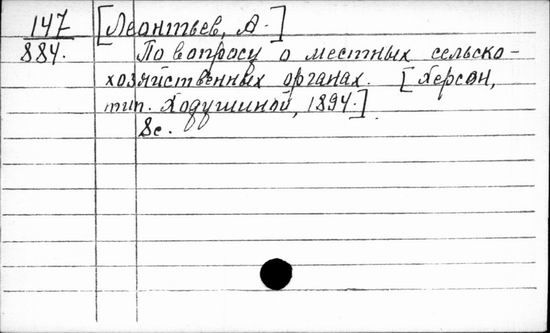 147 [Леонтьев, А.]
884. По вопросу о местных сельско-
хозяйственных органах. [Херсон,
тип. Ходушиной, 1894.]
8с.